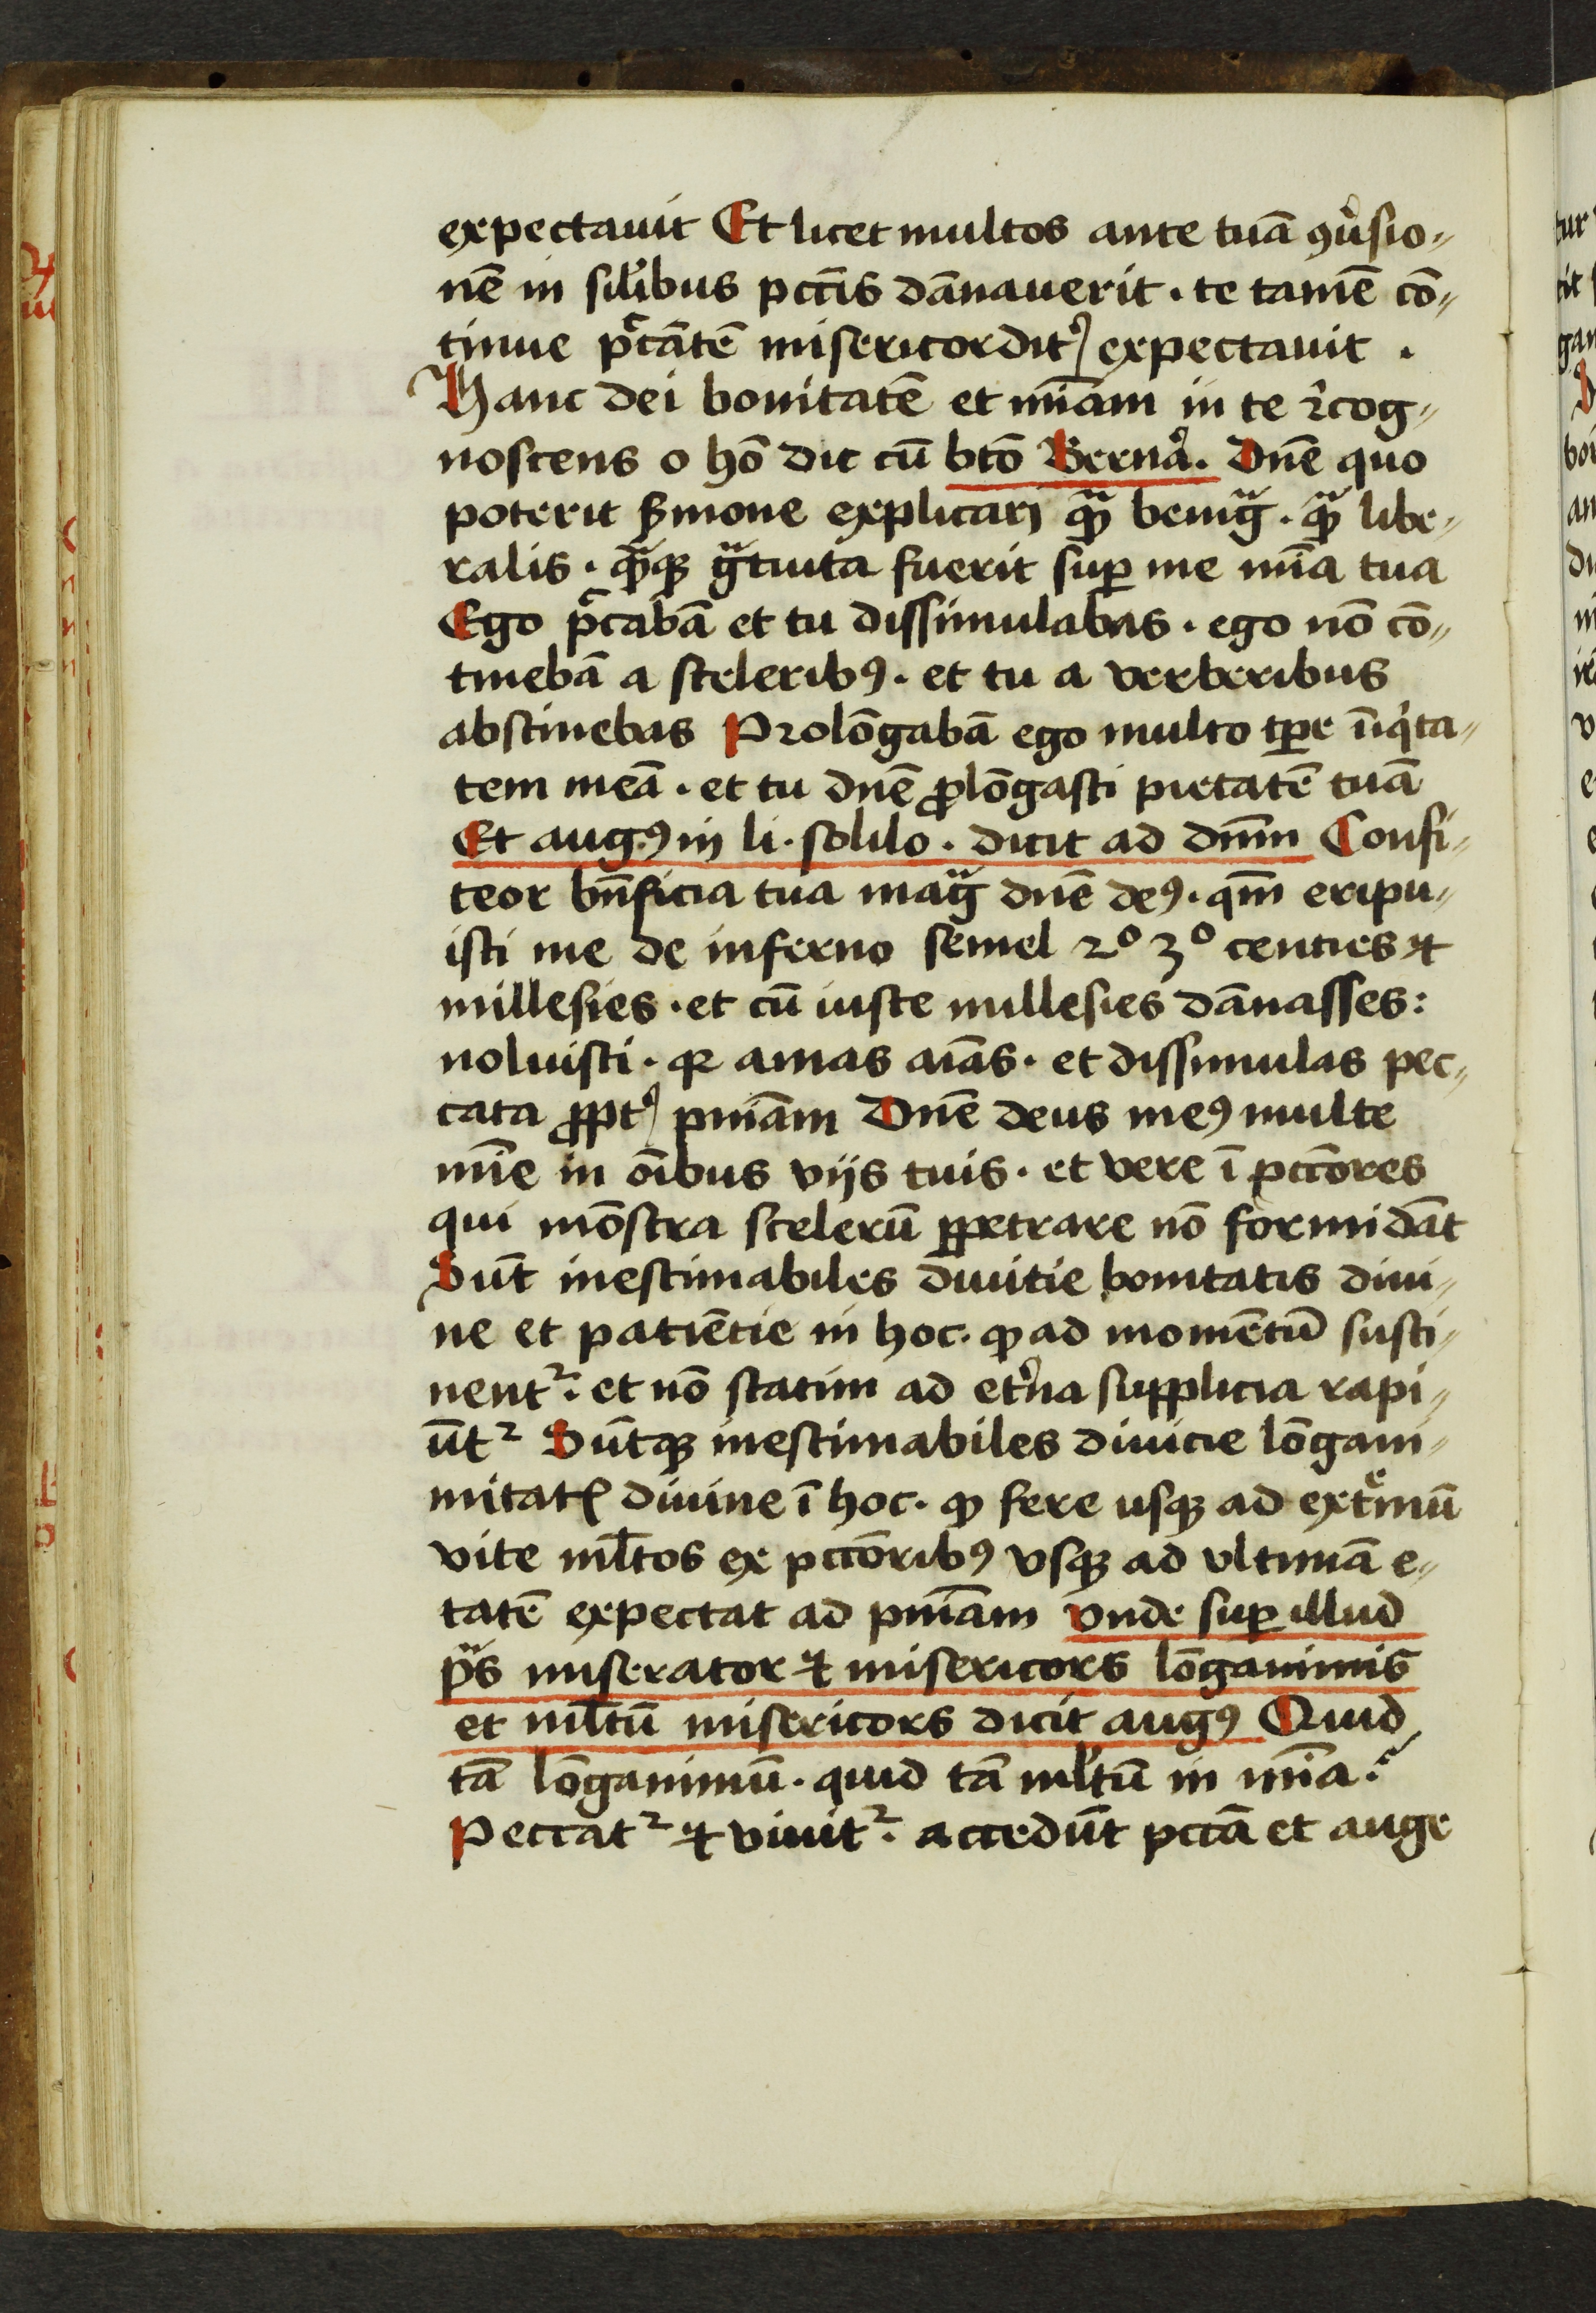 expectauit Et licet multos ante tuā ꝯu͛sio„
nē in sil̓ibus pctīs dānauerit · te tamē cō„
tinue pc̄cātē misericordit᷑ expectauit ·
Hanc dei bonitatē et mīam in te r̓cog„
noscens o hō dic cū bt̄o Bernar̓. Dn̄e quo
poterit s̓mone explicari qᷓꝫ benigᷓ · qᷓꝫ libe„
ralis · qᷓꝫqꝫ gᷓtuita fuerit suꝑ me mīa tua
Ego pc̄cabā et tu dissimulabas · ego nō cō„
tinebā a sceleribꝰ · et tu a verberibus
abstinebas Prolōgabā ego multo tꝑe īiqͥta„
tem meā · et tu dn̄e ꝓlōgasti pietatē tuā
Et augꝰ in li · solilo · dicit ad dn̄m Confi„
teor bn̄ficia tua magᷓ dn̄e deꝰ · qm̄ eripu„
isti me de inferno semel 2º 3º centies ⁊
millesies · et cū iuste millesies dānasses :
noluisti · qꝛ amas aīas · et dissimulas pec„
cata ꝓpt᷑ pn̄iam Dn̄e deus meꝰ multe
mīe in oībus vijs tuis · et vere ī pctōres
qui mōstra scelerū ꝑpetrare nō formidāt
Sūt inestimabiles diuitie bonitatis diui„
ne et patiētie in hoc · ꝙ ad momētū susti„
nentᷣ · et nō statim ad et͛na supplicia rapi„
ūtᷣ Sūtqꝫ inestimabiles diuicie lōgani„
mitatꝭ diuine ī hoc · ꝙ fere usqꝫ ad extͤmū
vite ml̄tos ex pctōribꝰ vsqꝫ ad vltimā e„
tatē expectat ad pn̄iam vnde suꝑ illud
pᷓs miserator ⁊ misericors lōganimis
et ml̄tū misericors dicit augꝰ Quid
tā lōganimū · quid tā ml̄tū in mīa ?
Peccatᷣ ⁊ viuitᷣ · accedūt pctā et auge